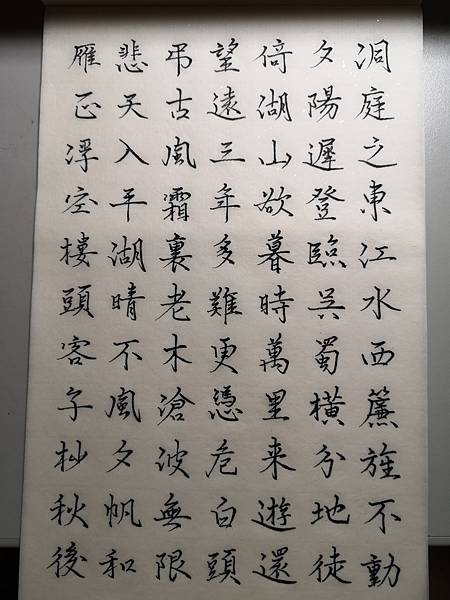 洞庭之東江水西簾旌不動
夕陽遲登臨吳蜀橫分地徒
倚湖山欲暮時萬里来遊還
望遠三年多難更憑危白頭
吊古風霜裏老木滄波無限
悲天入平湖晴不風夕帆和
雁正浮空樓頭客子杪秋後